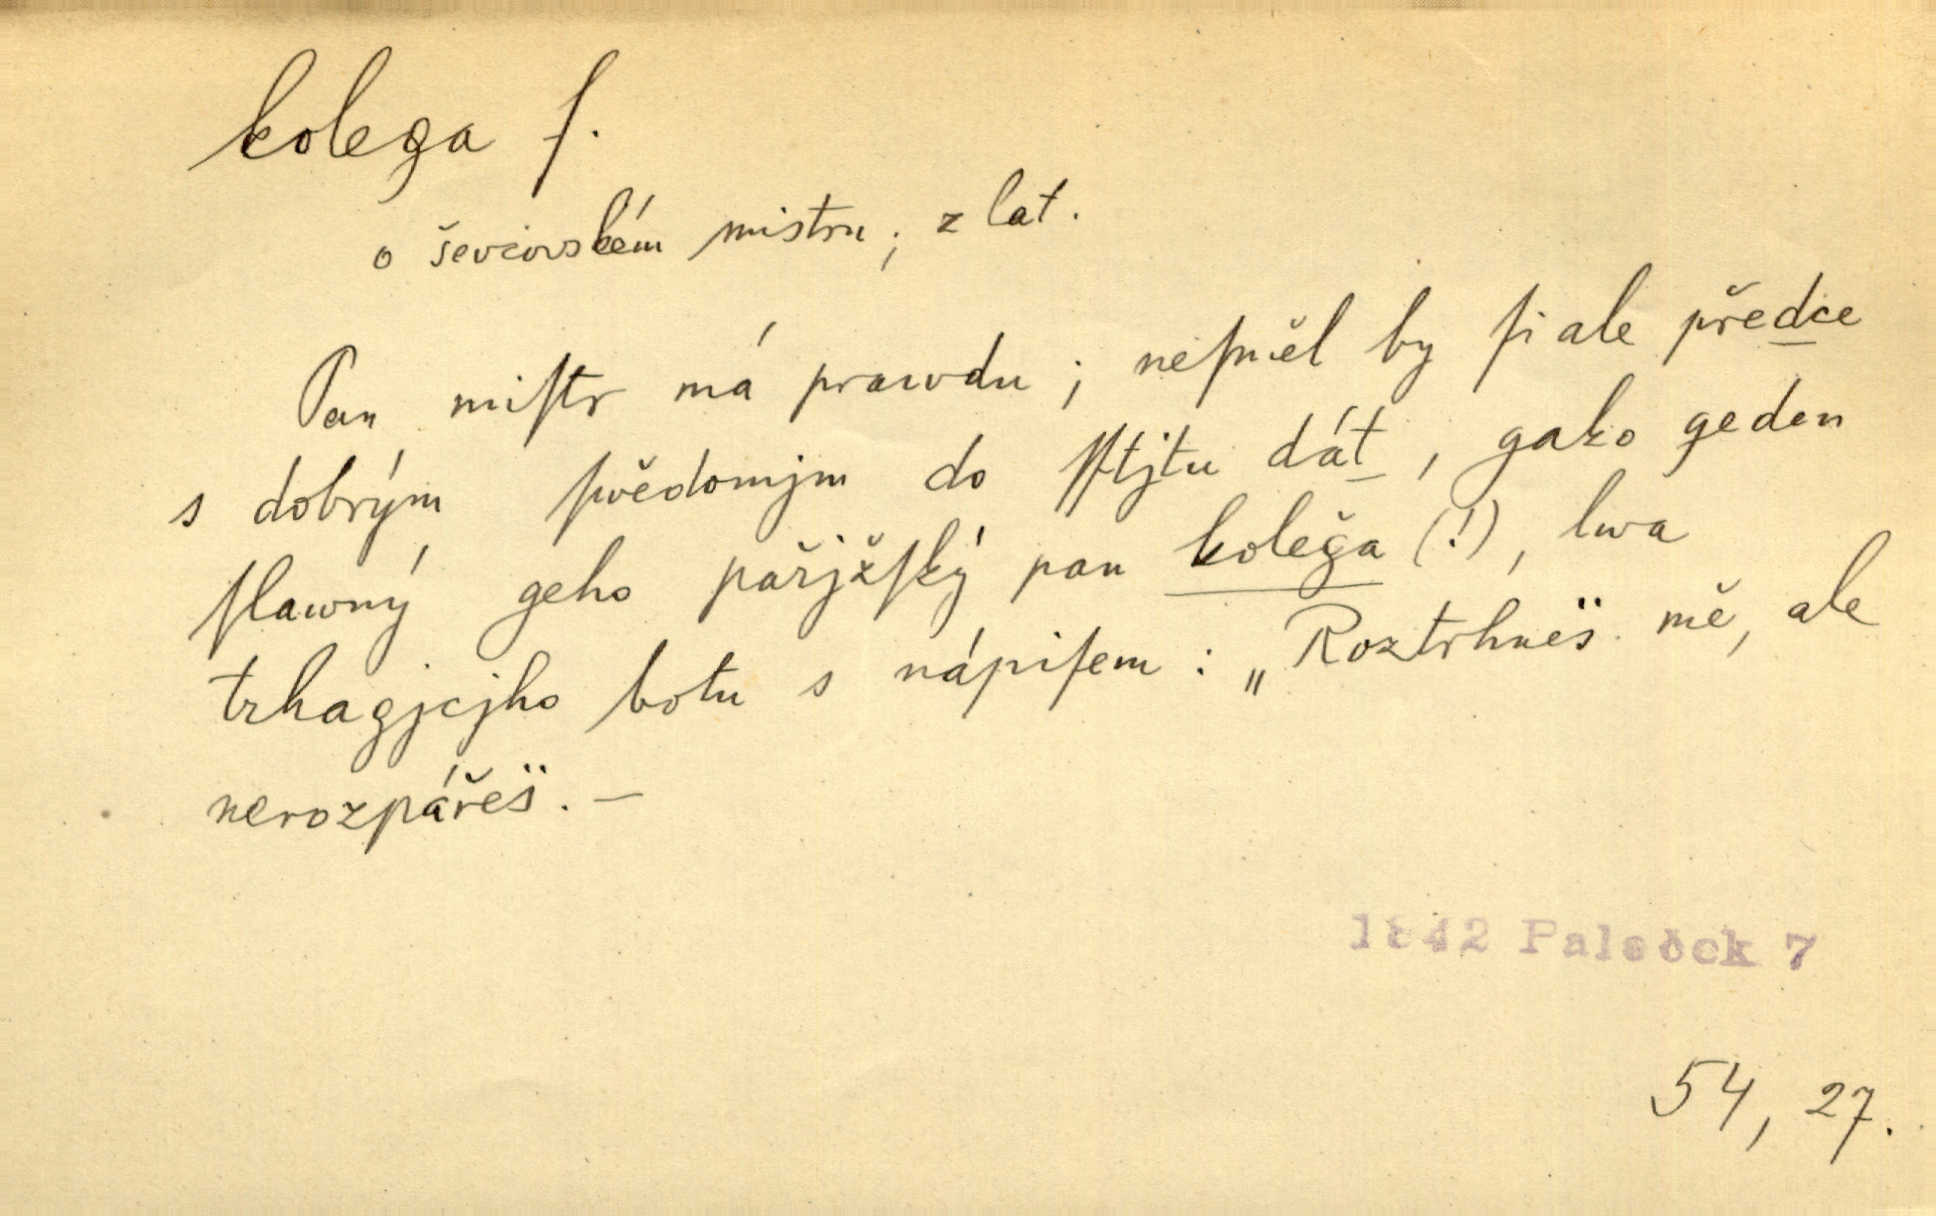 kolega f.
o ševcovském mistru; z lat.
Pan miſtr má prawdu; neſměl by ſi ale předce
s dobrým ſwědomjm do ſſtjtu dát, gako geden
ſlawný geho pařjžſký pan koleǧa (!), lwa
trhagjcjho botu s nápiſem: „Roztrhneš mě, ale
nerozpářeš. —
1842 Paleček 7
54, 27.